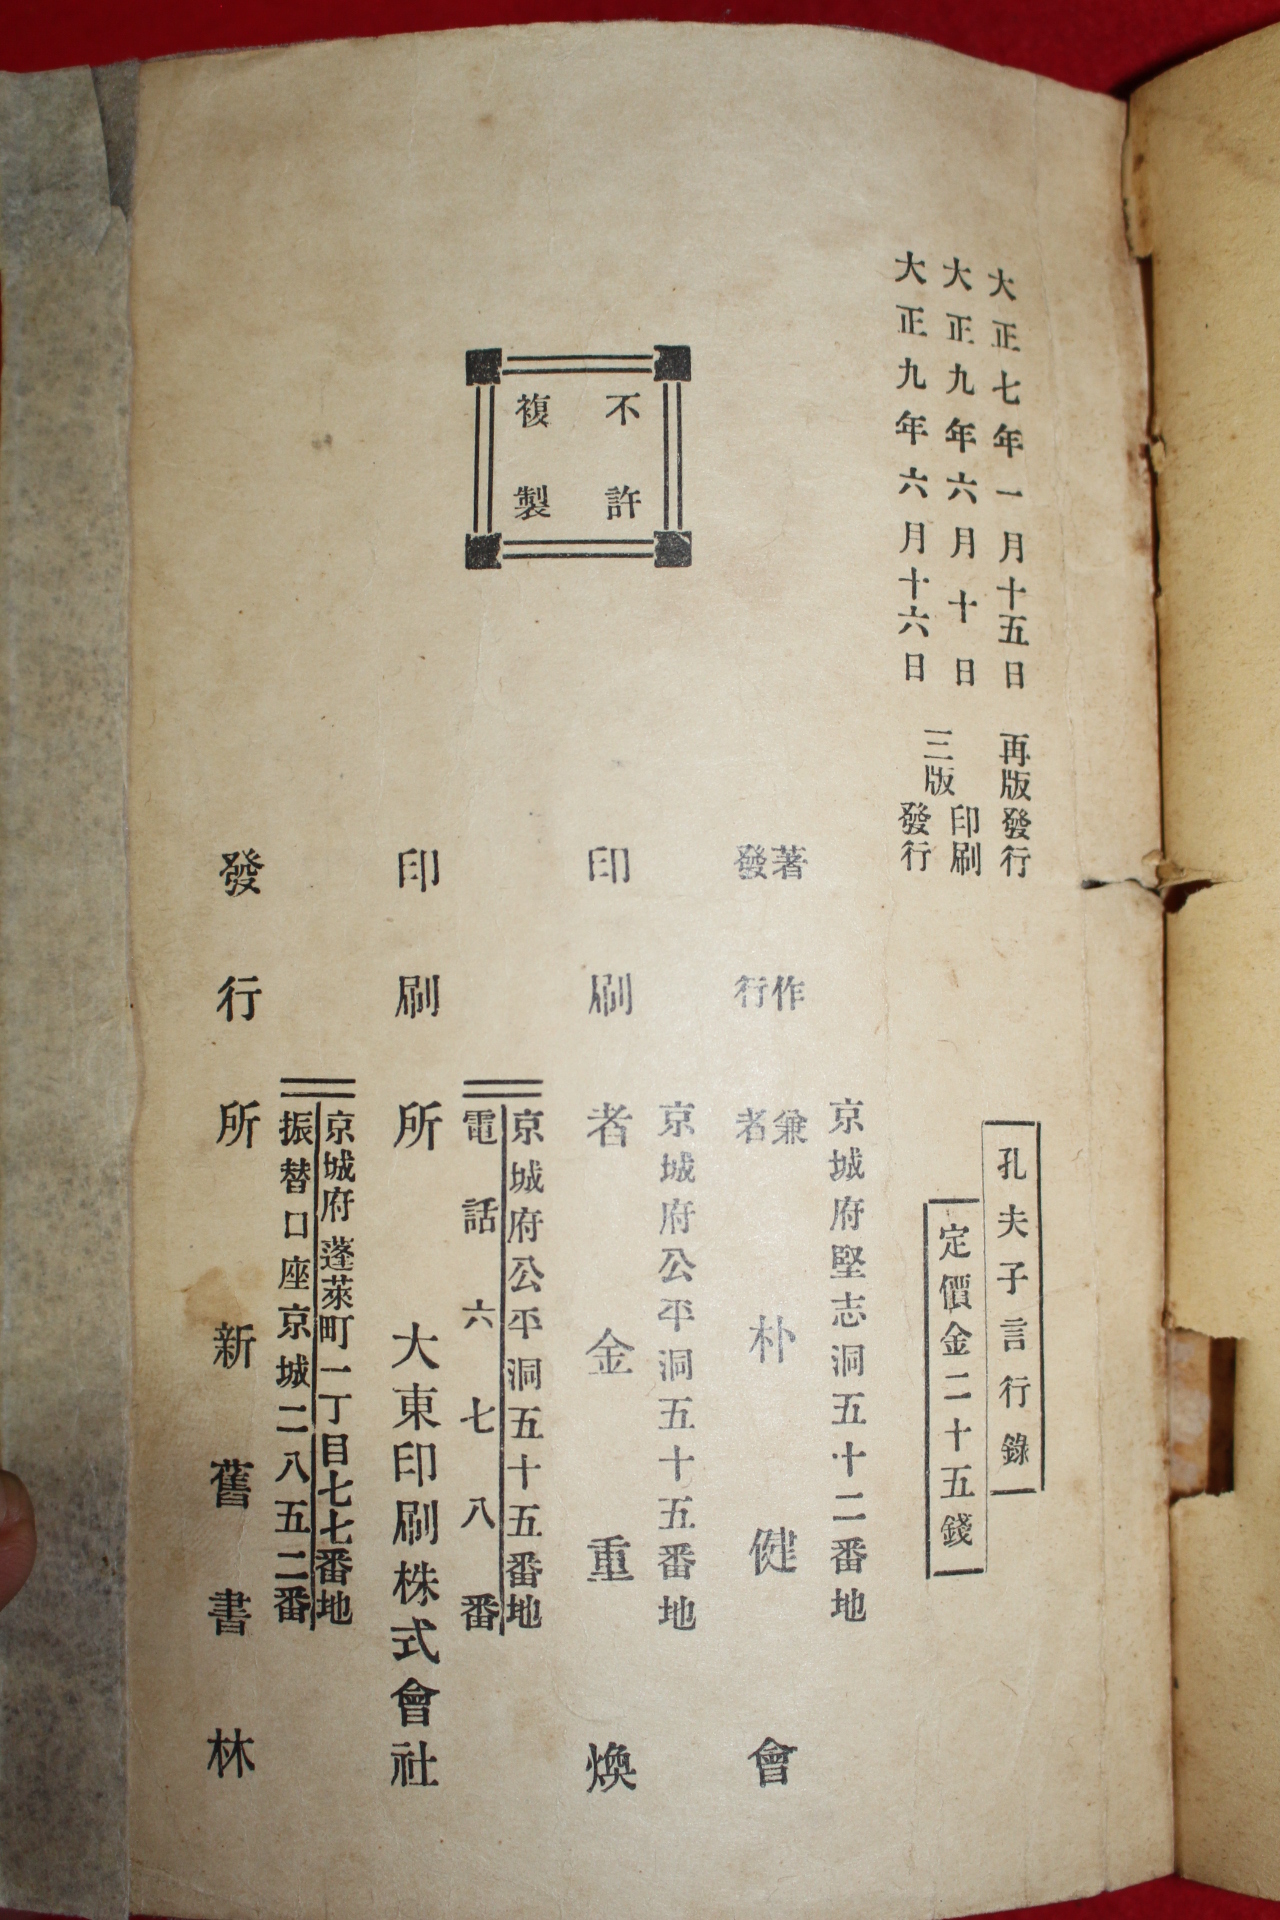 大正七年一月十五日 再版發行
大正九年六月十日 三版印刷
大正九年六月十六日 發行
孔夫子言行錄
定價金二十五錢
不許
複製
京城府堅志洞五十二番地
著作兼
發行者 朴健會
京城府公平洞五十五番地
印刷者 金重煥
京城府公平洞五十五番地
電話六七八番
印刷所 大東印刷株式會社
京城府蓬萊町一丁目七七番地
振替口座京城二八五二番
發行所 新舊書林